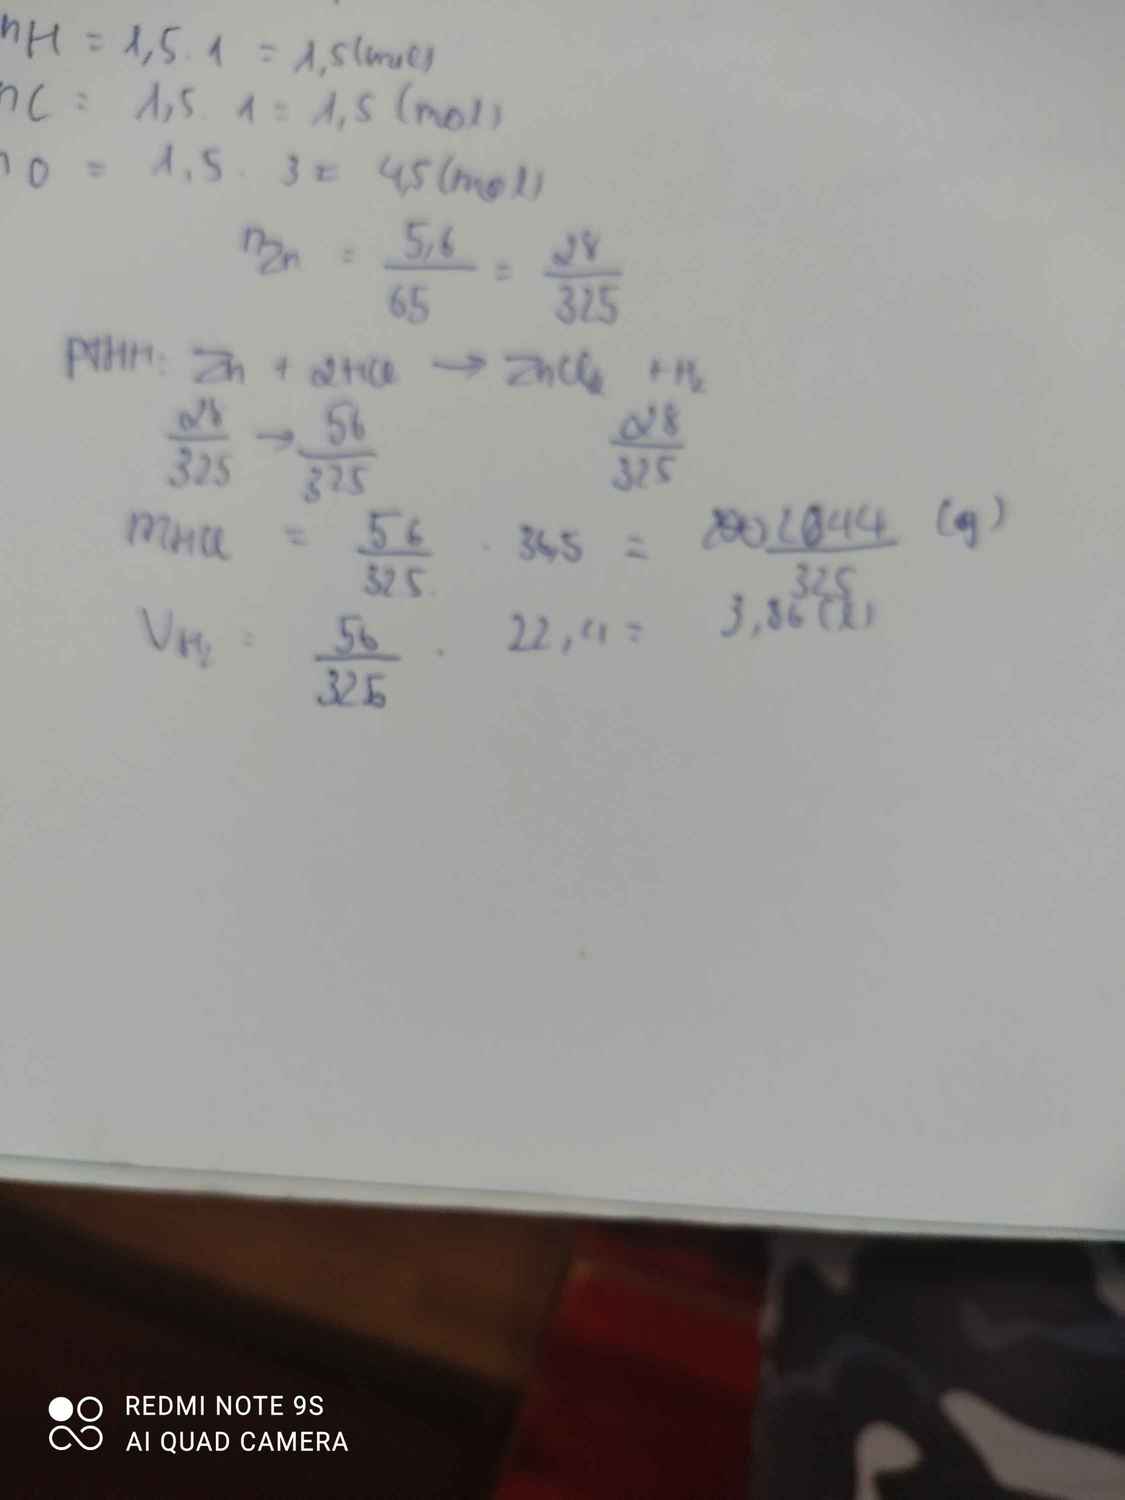 nH = 1,5 . 1 = 1,5 (mol)
nC = 1,5 . 1 = 1,5 (mol)
nO = 1,5 . 3 = 4,5 (mol)
nZn = 5,6/65 = 28/325
PTHH: Zn + 2HCl → ZnCl2 + H2
28/325 → 56/325 28/325
mHCl = 56/325 . 36,5 = 2044/325 (g)
VH2 = 56/325 . 22,4 = 3,86 (l)
REDMI NOTE 9S
AI QUAD CAMERA